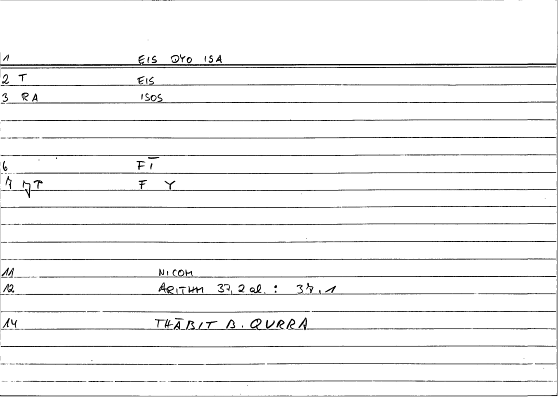 1 EIS DYO ISA
2 T EIS
3 RA ISOS
6 F T̄
7 T F Y
11 NICOM
12 ARITHM 37, 2 al. : 37, 1
14 THĀBIT B. QURRA